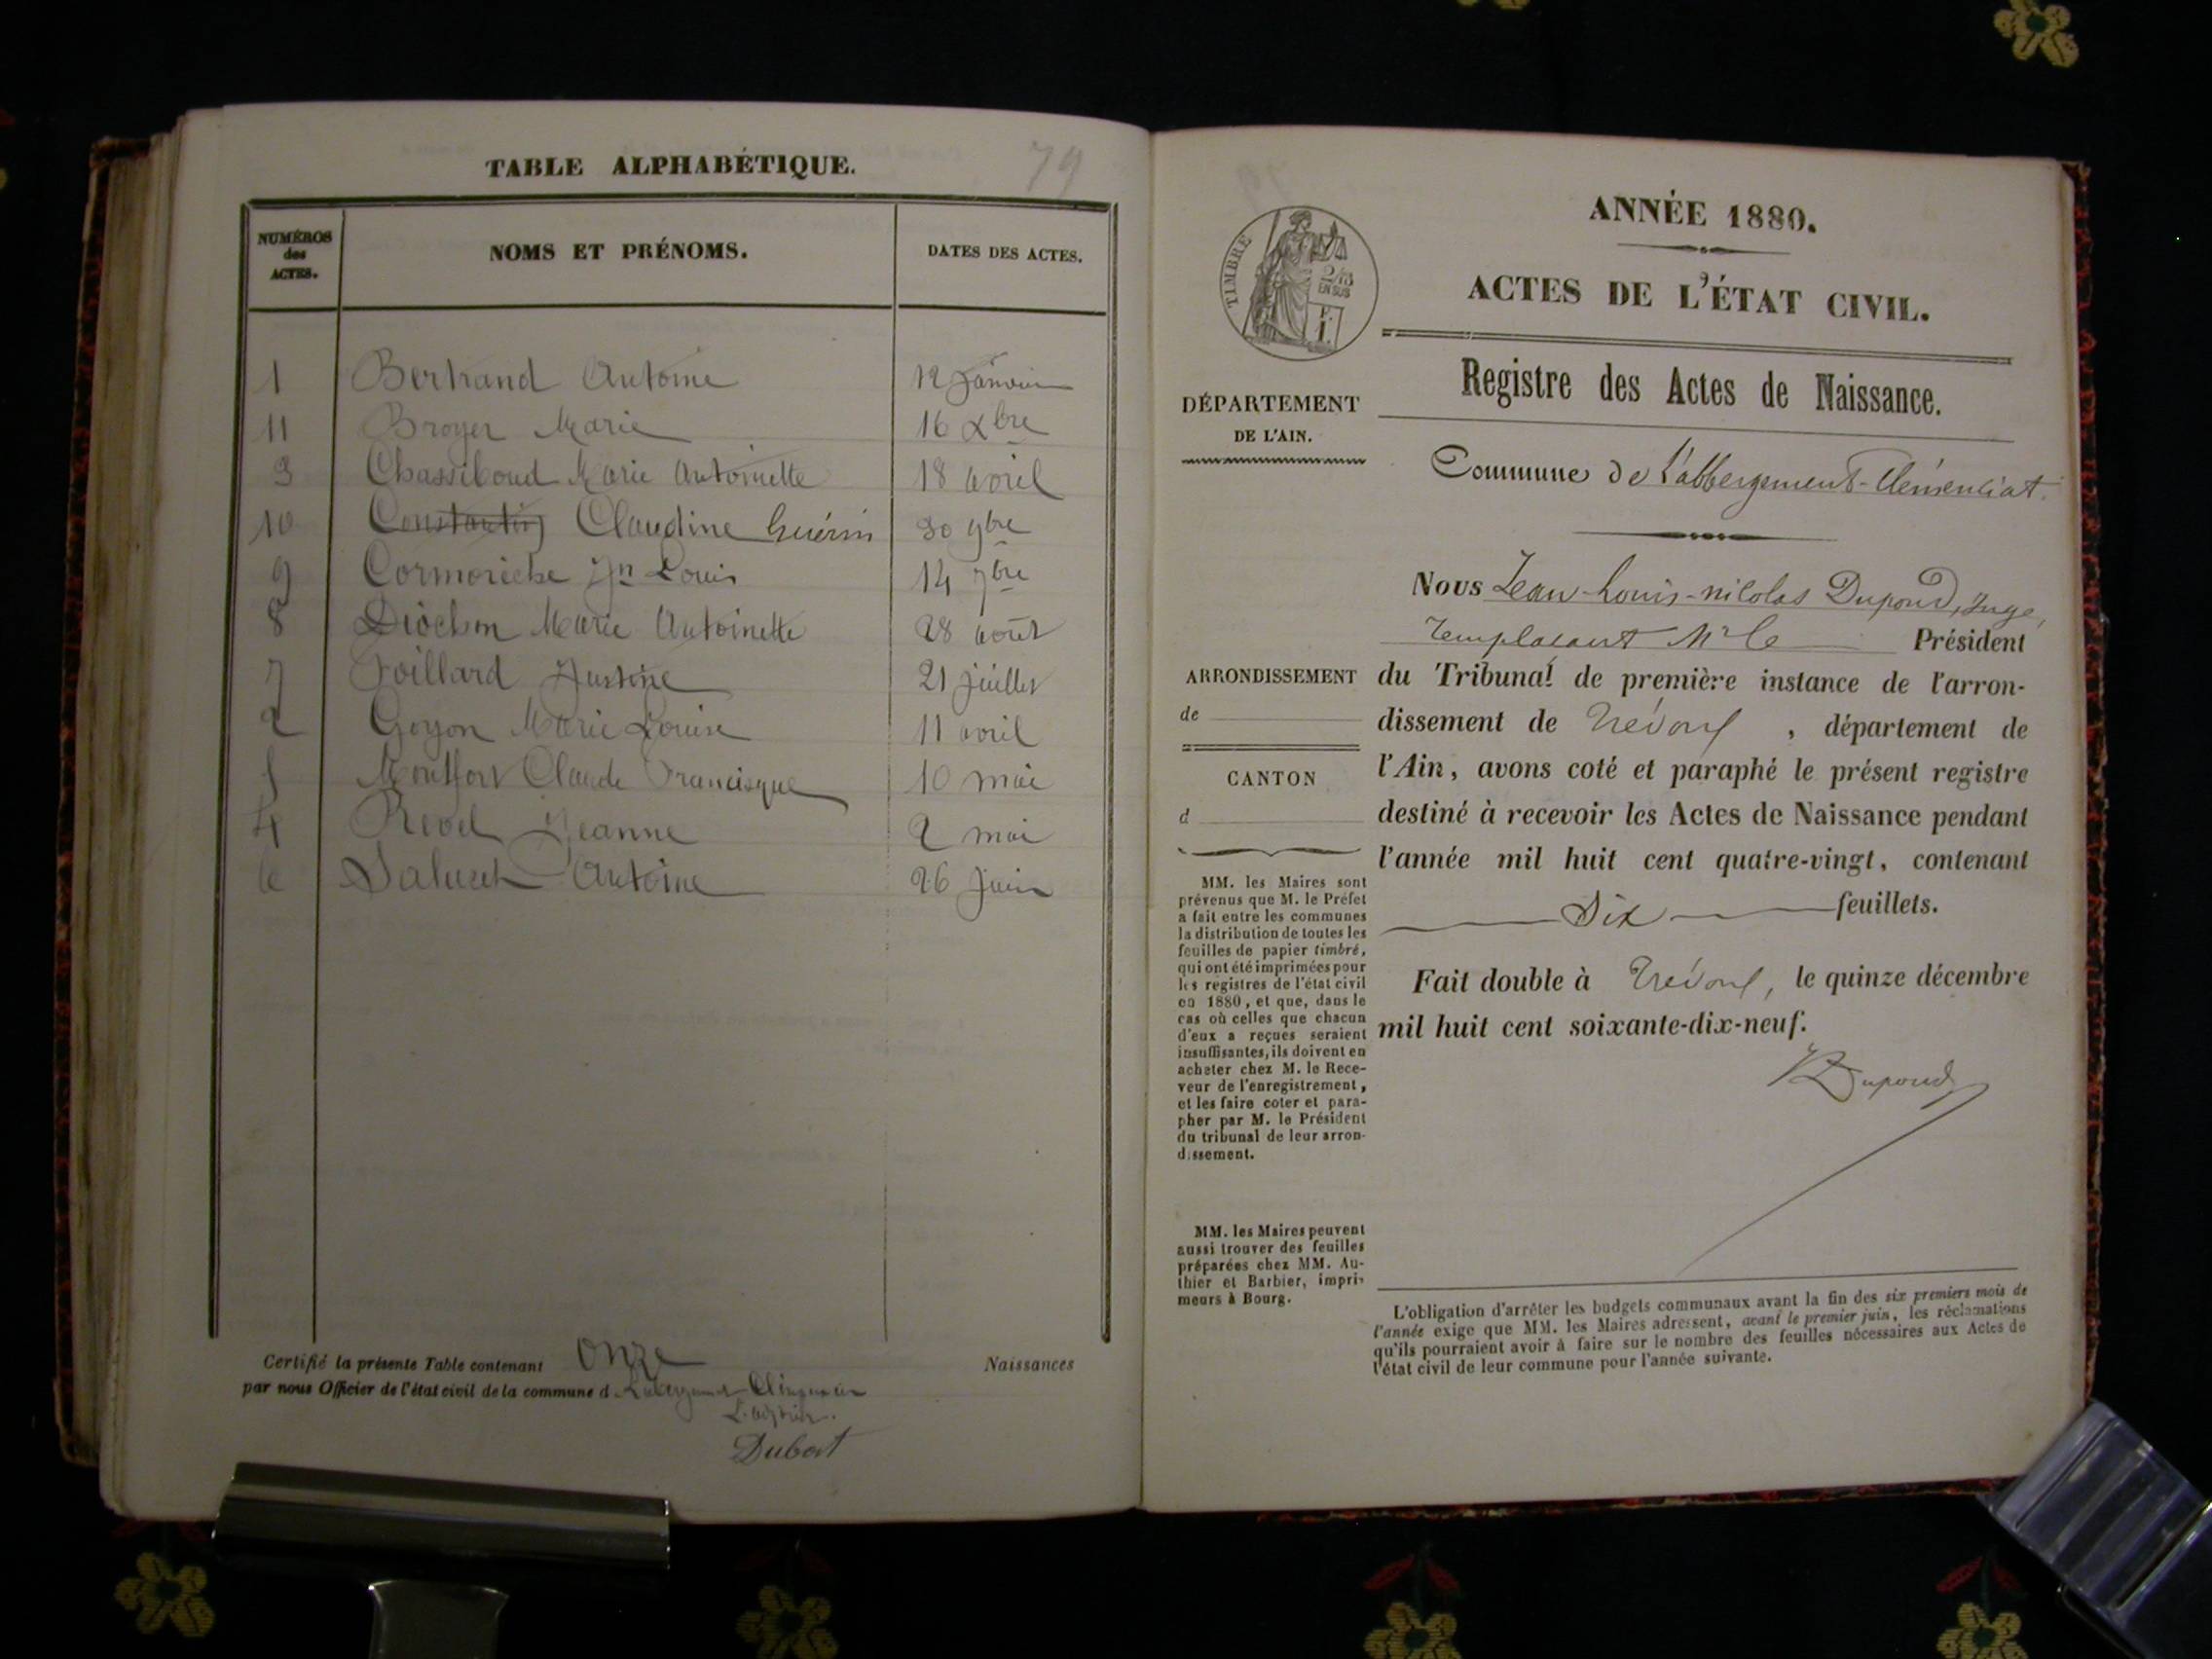 TABLE ALPHABÉTIQUE. 79
NUMÉROS des ACTES. NOMS ET PRÉNOMS. DATES DES ACTES.
1 Bertrand Antoine 12 Janvier
11 Broyer Marie 16 Xbre
3 Chassiboud Marie Antoinette 18 avril
10 Constantin Claudine Guérin 30 9bre
9 Cormorèche Jn Louis 14 7bre
8 Diochon Marie Antoinette 28 août
7 Foillard Justine 21 juillet
2 Goyon Marie Louise 11 avril
5 Montfort Claude Francisque 10 mai
4 Revel Jeanne 2 mai
6 Antoine 26 juin
Certifié la présente Table contenant Onze Naissances
par nous Officier de l'état civil de la commune d
Dubost
ANNÉE 1880.
ACTES DE L'ÉTAT CIVIL.
TIMBRE
2/10
EN SUS
F.
1.
Registre des Actes de Naissance.
DÉPARTEMENT
DE L'AIN.
Commune de l'abbergement-Clémenciat.
Nous Jean-Louis-nicolas Dupond, Juge,
remplaçant Mr le Président
du Tribunal de première instance de l'arron-
dissement de Trévoux, département de
l'Ain, avons coté et paraphé le présent registre
destiné à recevoir les Actes de Naissance pendant
l'année mil huit cent quatre-vingt, contenant
Dix feuillets.
Fait double à Trévoux, le quinze décembre
mil huit cent soixante-dix-neuf.
Dupond
ARRONDISSEMENT
de
CANTON
d
MM. les Maires sont
prévenus que M. le Préfet
a fait entre les communes
la distribution de toutes les
feuilles de papier timbré,
qui ont été imprimées pour
les registres de l'état civil
en 1880, et que, dans le
cas où celles que chacun
d'eux a reçues seraient
insuffisantes, ils doivent en
acheter chez M. le Rece-
veur de l'enregistrement,
et les faire coter et para-
pher par M. le Président
du tribunal de leur arron-
dissement.
MM. les Maires peuvent
aussi trouver des feuilles
préparées chez MM. Au-
thier et Barbier, impri-
meurs à Bourg.
L'obligation d'arrêter les budgets communaux avant la fin des six premiers mois de
l'année exige que MM. les Maires adressent, avant le premier juin, les réclamations
qu'ils pourraient avoir à faire sur le nombre des feuilles nécessaires aux Actes de
l'état civil de leur commune pour l'année suivante.